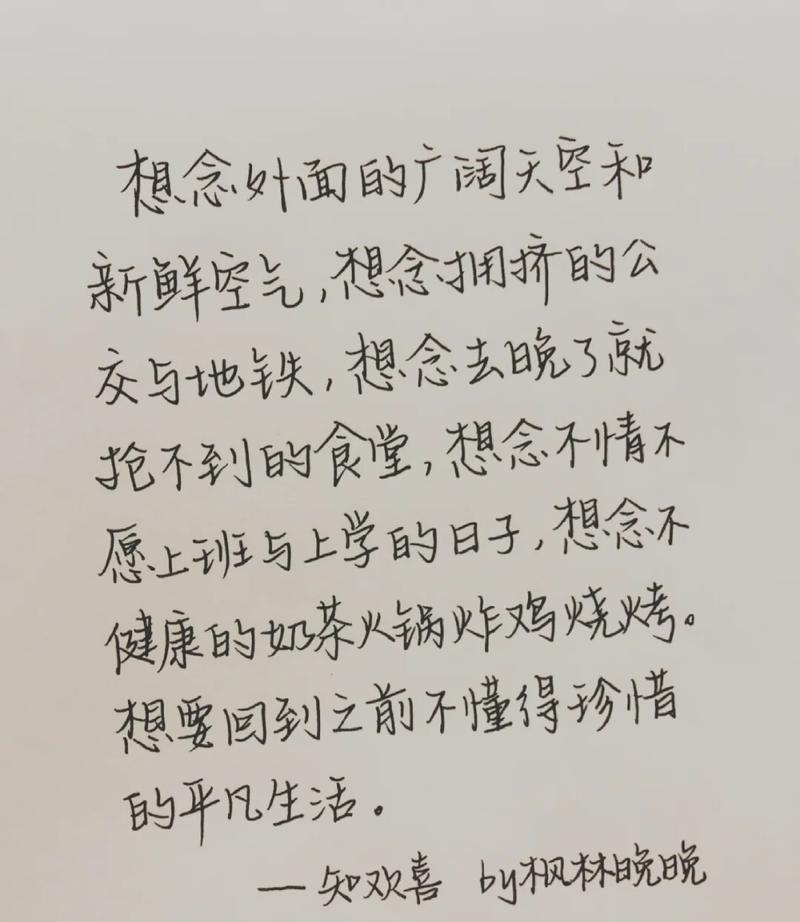 想念外面的广阔天空和
新鲜空气,想念拥挤的公
交与地铁,想念去晚了就
抢不到的食堂,想念不情不
愿上班与上学的日子,想念不
健康的奶茶火锅炸鸡烧烤。
想要回到之前不懂得珍惜
的平凡生活。
—知欢喜 by枫林晚晚